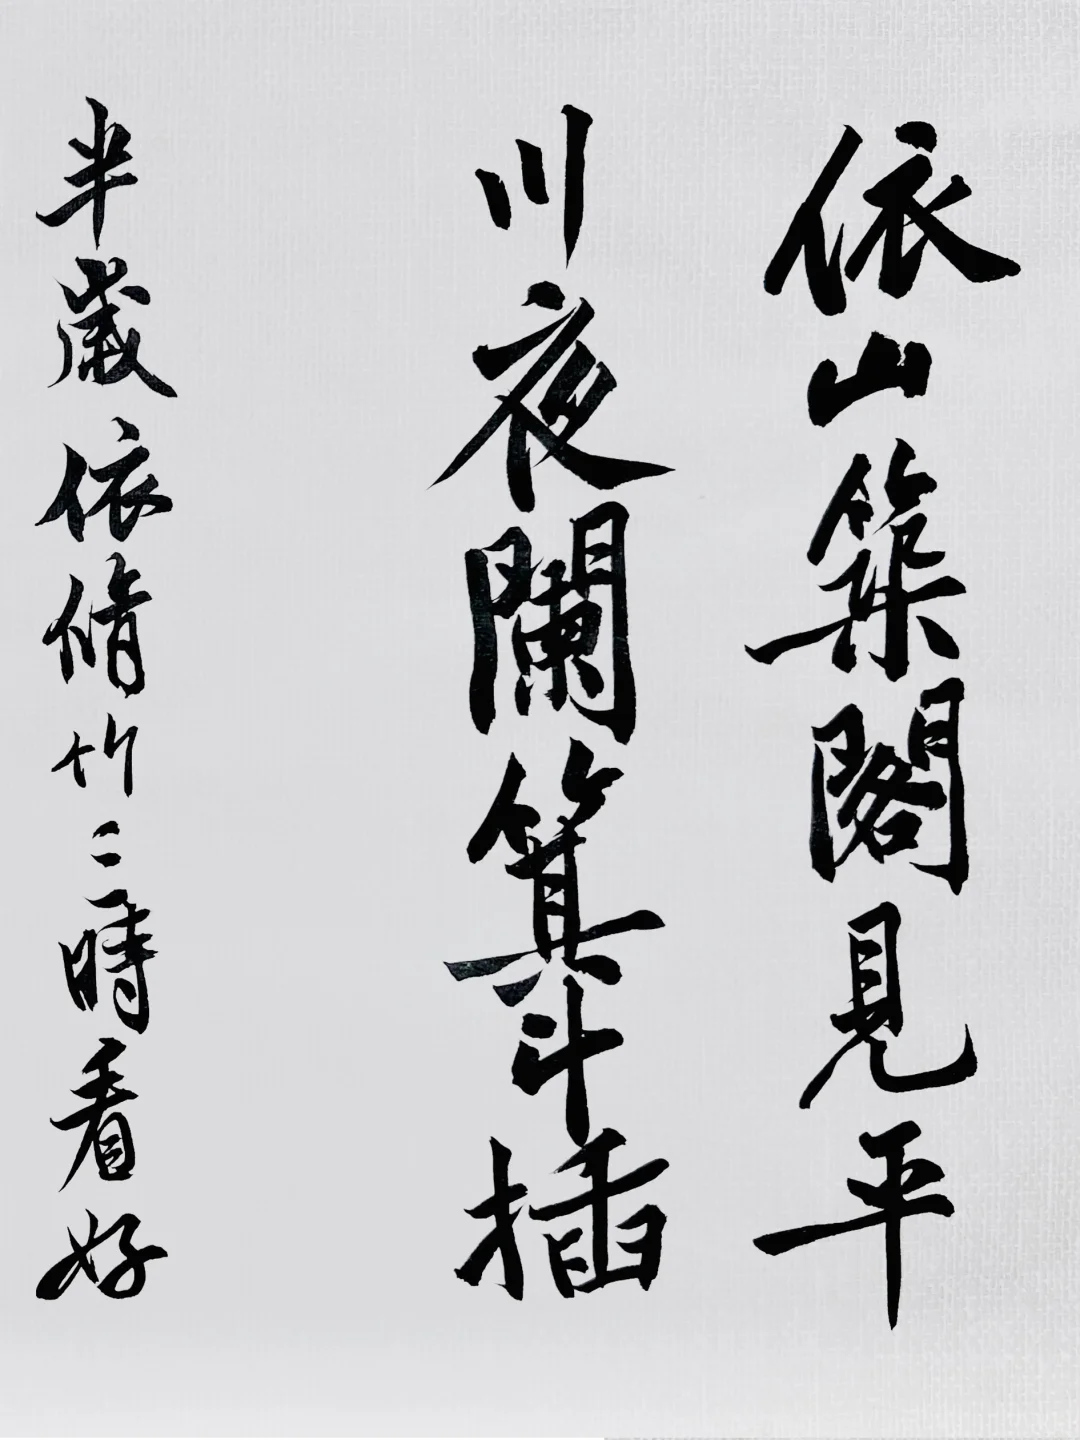 依山築閣見平
川夜闌箕斗插
半歲依脩竹三時看好